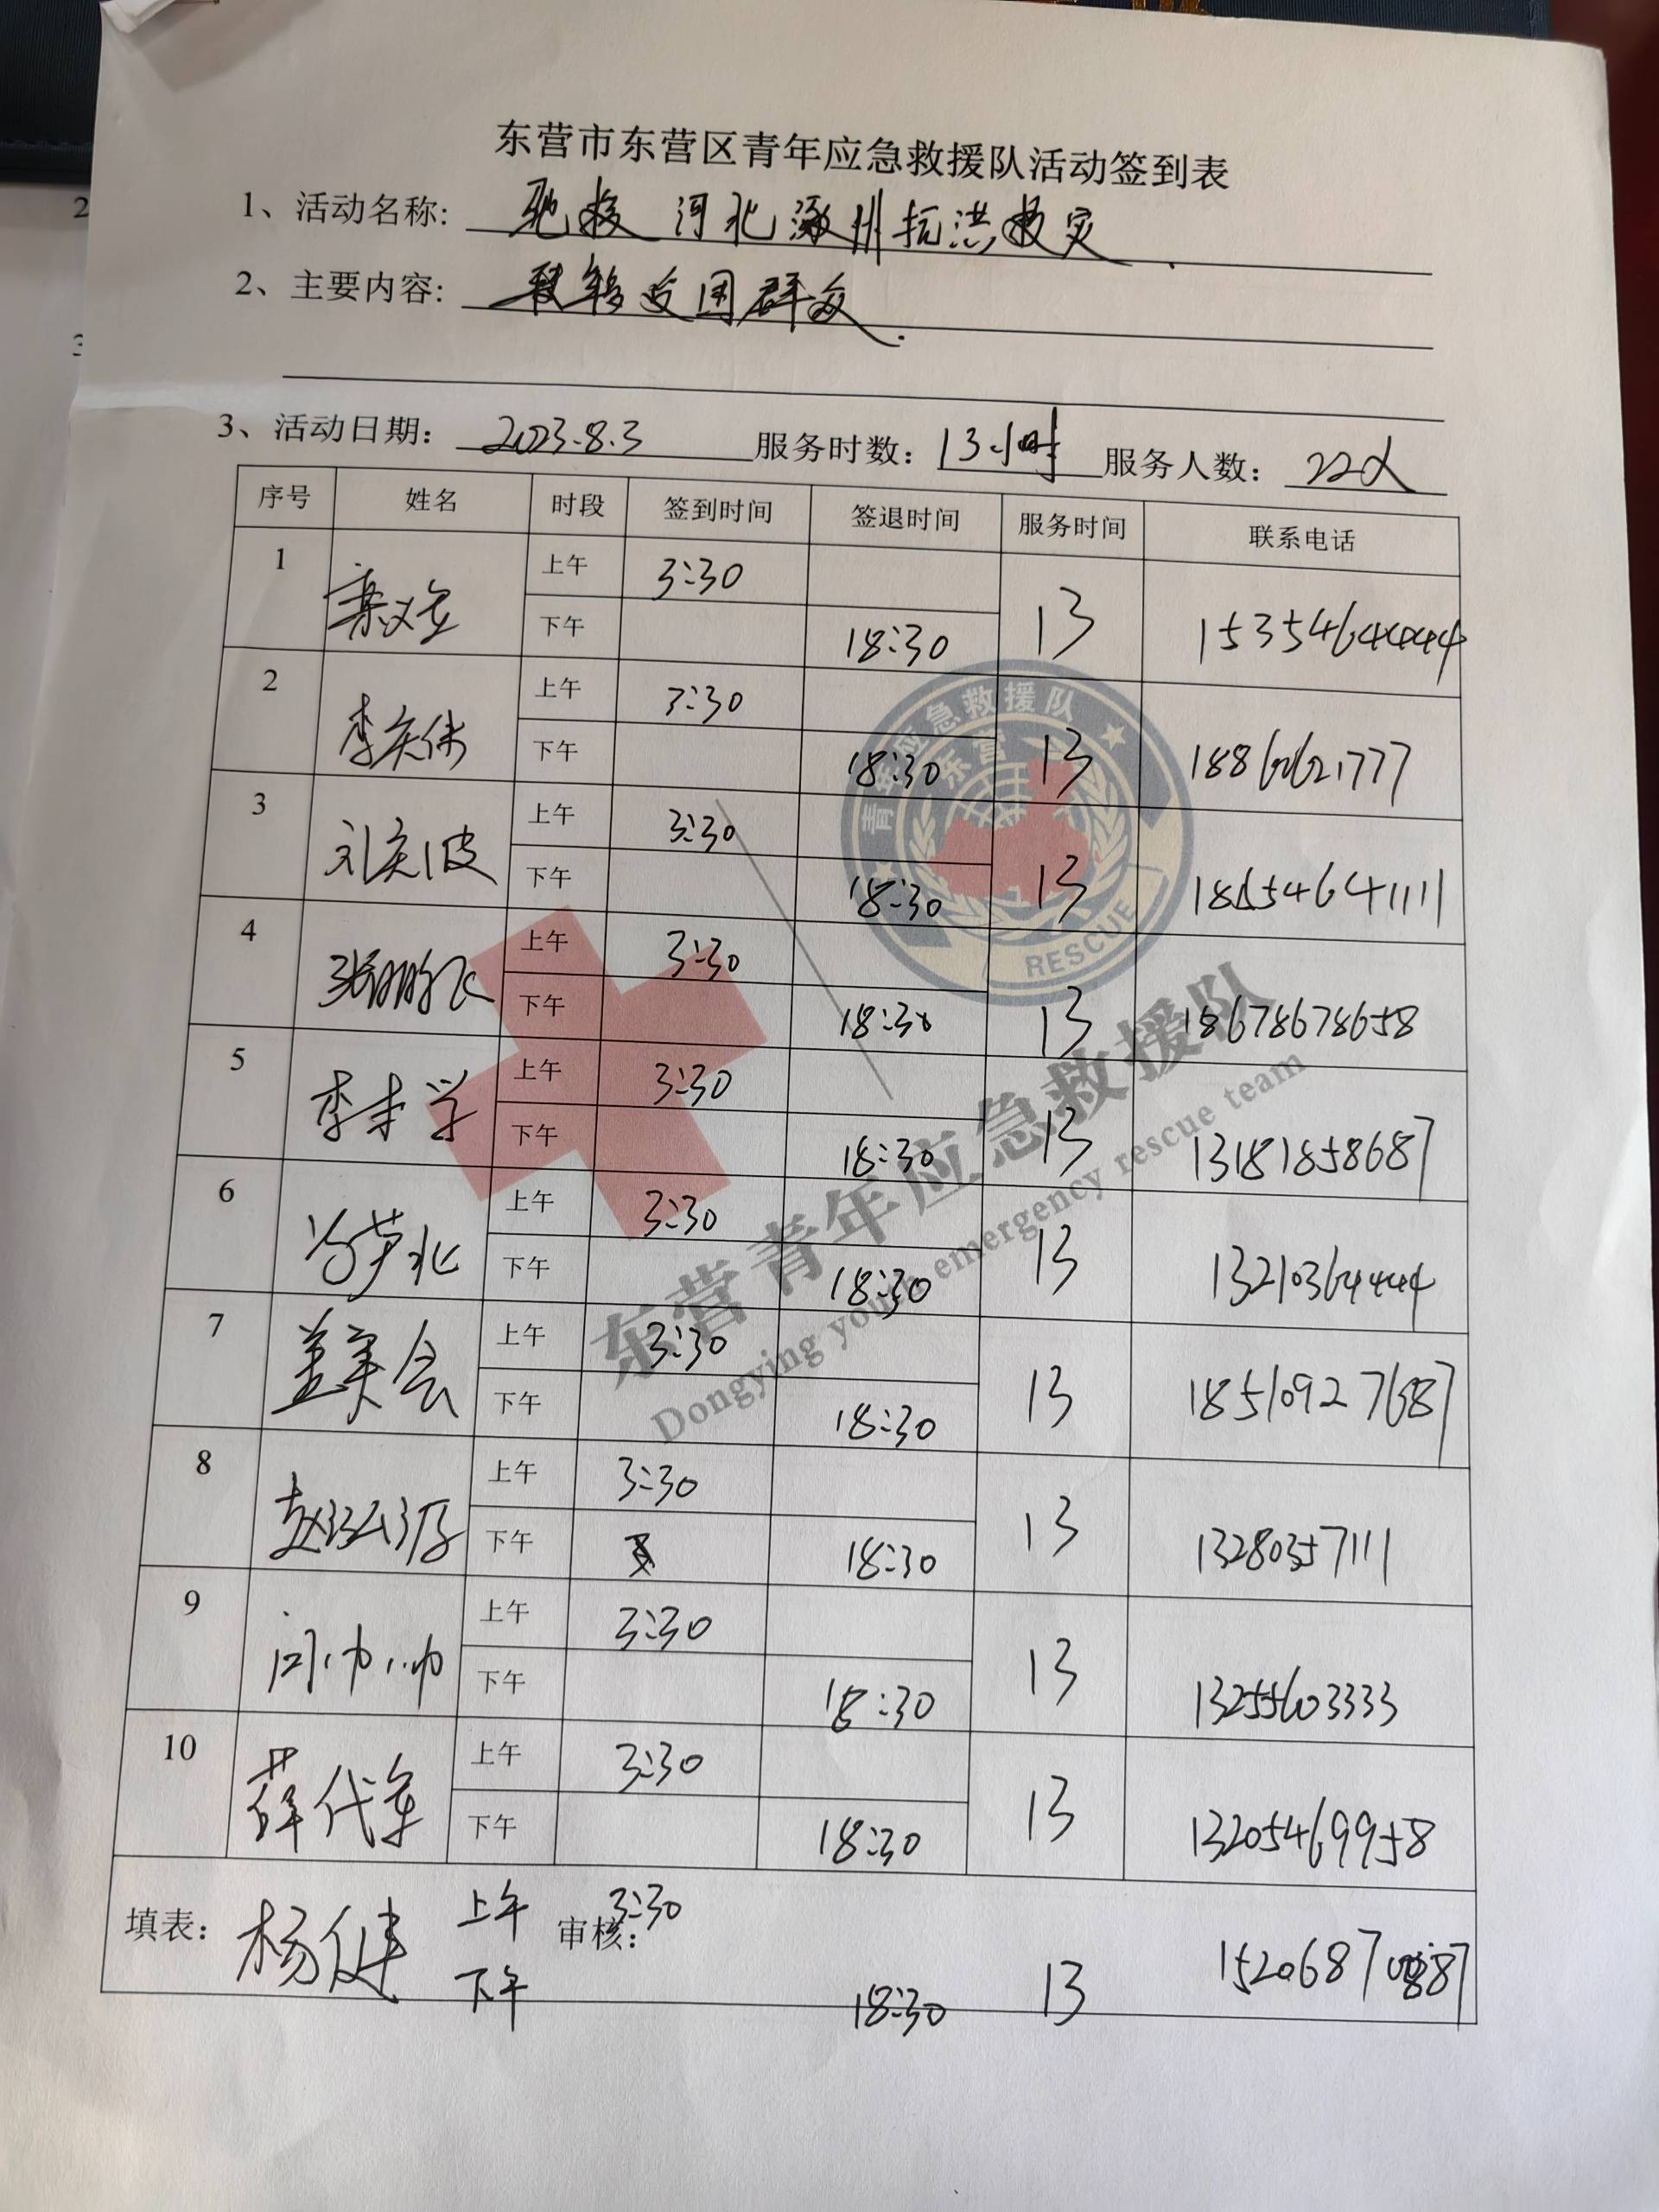 东营市东营区青年应急救援队活动签到表
1、活动名称: 驰援河北涿州抗洪救灾.
2、主要内容: 转移受困群众.
3、活动日期: 2023.8.3 服务时数: 13小时 服务人数: 22人
序号 姓名 时段 签到时间 签退时间 服务时间 联系电话
1 上午 3:30
下午 18:30 13 15354644444
2 李庆伟 上午 3:30
下午 18:30 13 18866621777
3 刘庆波 上午 3:30
下午 18:30 13 18654641111
4 张鹏飞 上午 3:30
下午 18:30 13 18678678658
5 李才学 上午 3:30
下午 18:30 13 13181858687
6 上午 3:30
下午 18:30 13 13210364444
7 盖美会 上午 3:30
下午 18:30 13 18510927687
8 上午 3:30
下午 18:30 13 13280357111
9 闫帅帅 上午 3:30
下午 18:30 13 13255603333
10 薛代军 上午 3:30
下午 18:30 13 13205469958
填表: 杨健 上午 审核: 3:30
下午 18:30 13
青年应急救援队
东营
RESCUE
东营青年应急救援队
Dongying youth emergency rescue team
2
3